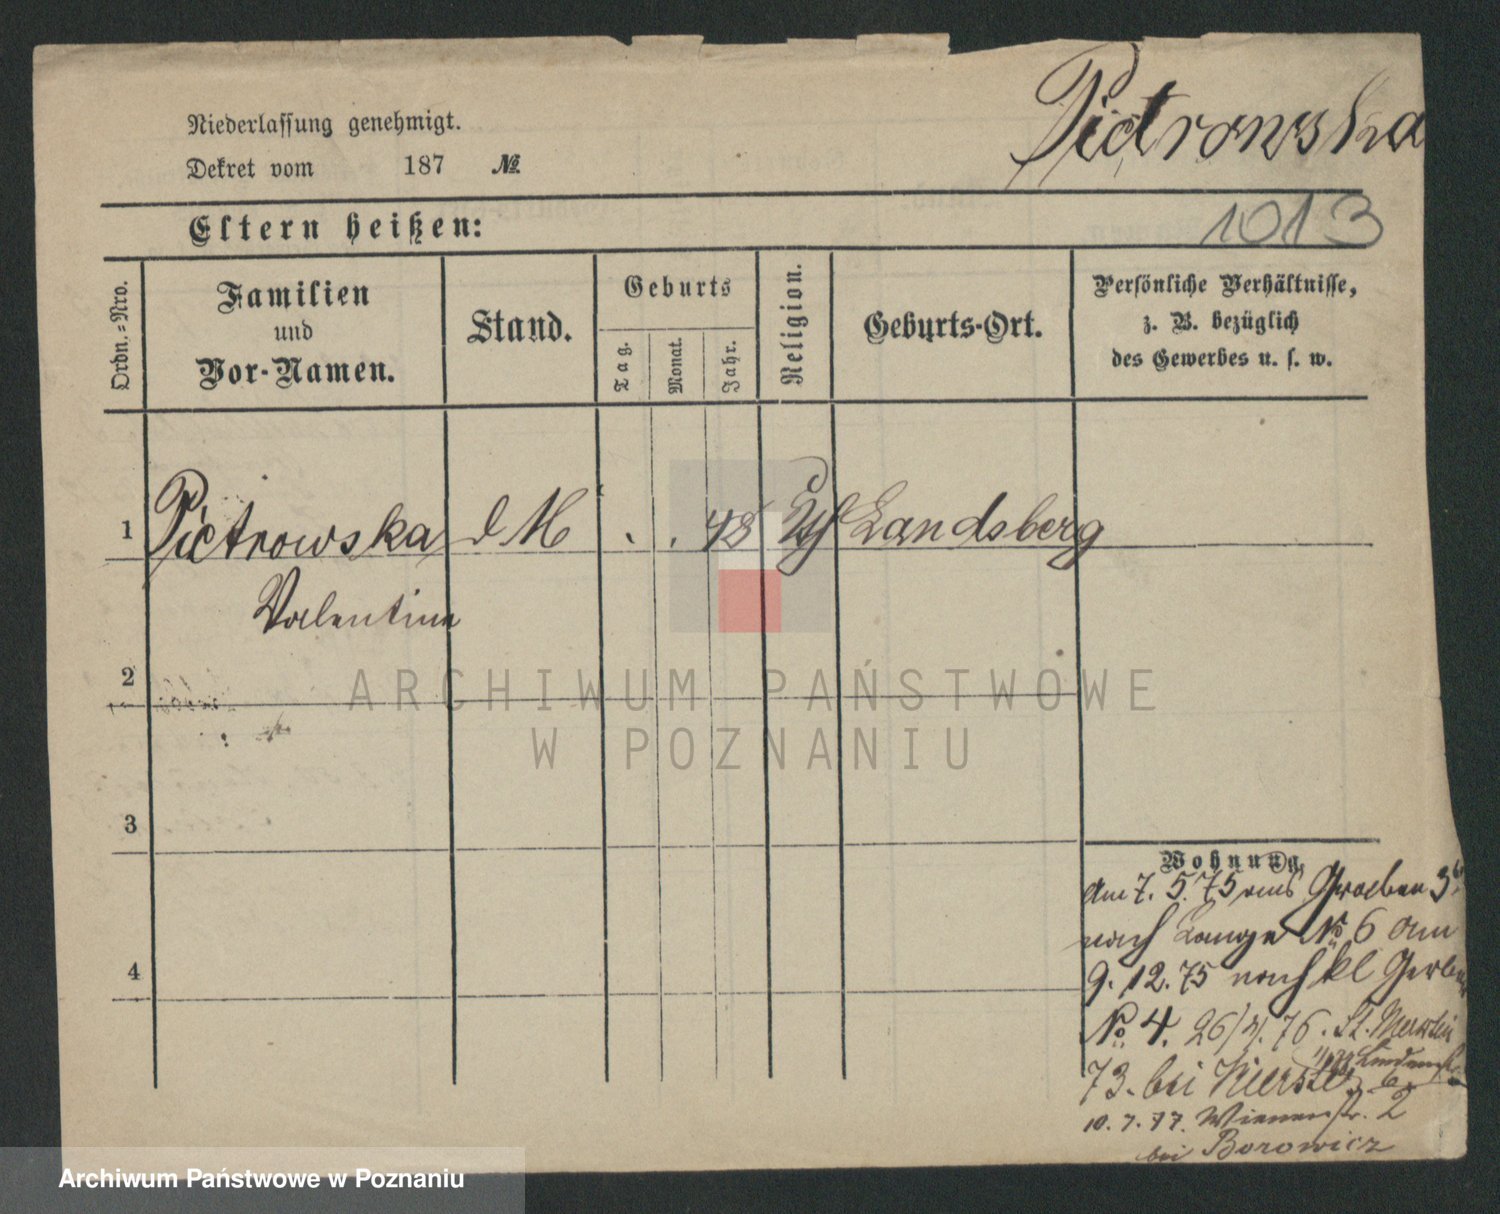 Pietrowska
Niederlassung genehmigt.
Dekret vom 187 №
Eltern heißen:
1013
Ordn.=Nro.
Familien
und
Vor-Namen.
Stand.
Geburts
Tag.
Monat.
Jahr.
Religion.
Geburts-Ort.
Persönliche Verhältnisse,
z. B. bezüglich
des Gewerbes u. s. w.
1 Pietrowska d M . . 48 Landsberg
Valentine
2
3
4
Wohnung.
am 7. 5. 75 aus Graben 3
nach Lange № 6 am
9. 12. 75 nach kl Gerber
No 4. 26/ 76. St. Martin
73. bei
6.
10. 7. 77. Wienerstr. 2
bei Borowicz
ARCHIWUM PAŃSTWOWE
W POZNANIU
Archiwum Państwowe w Poznaniu